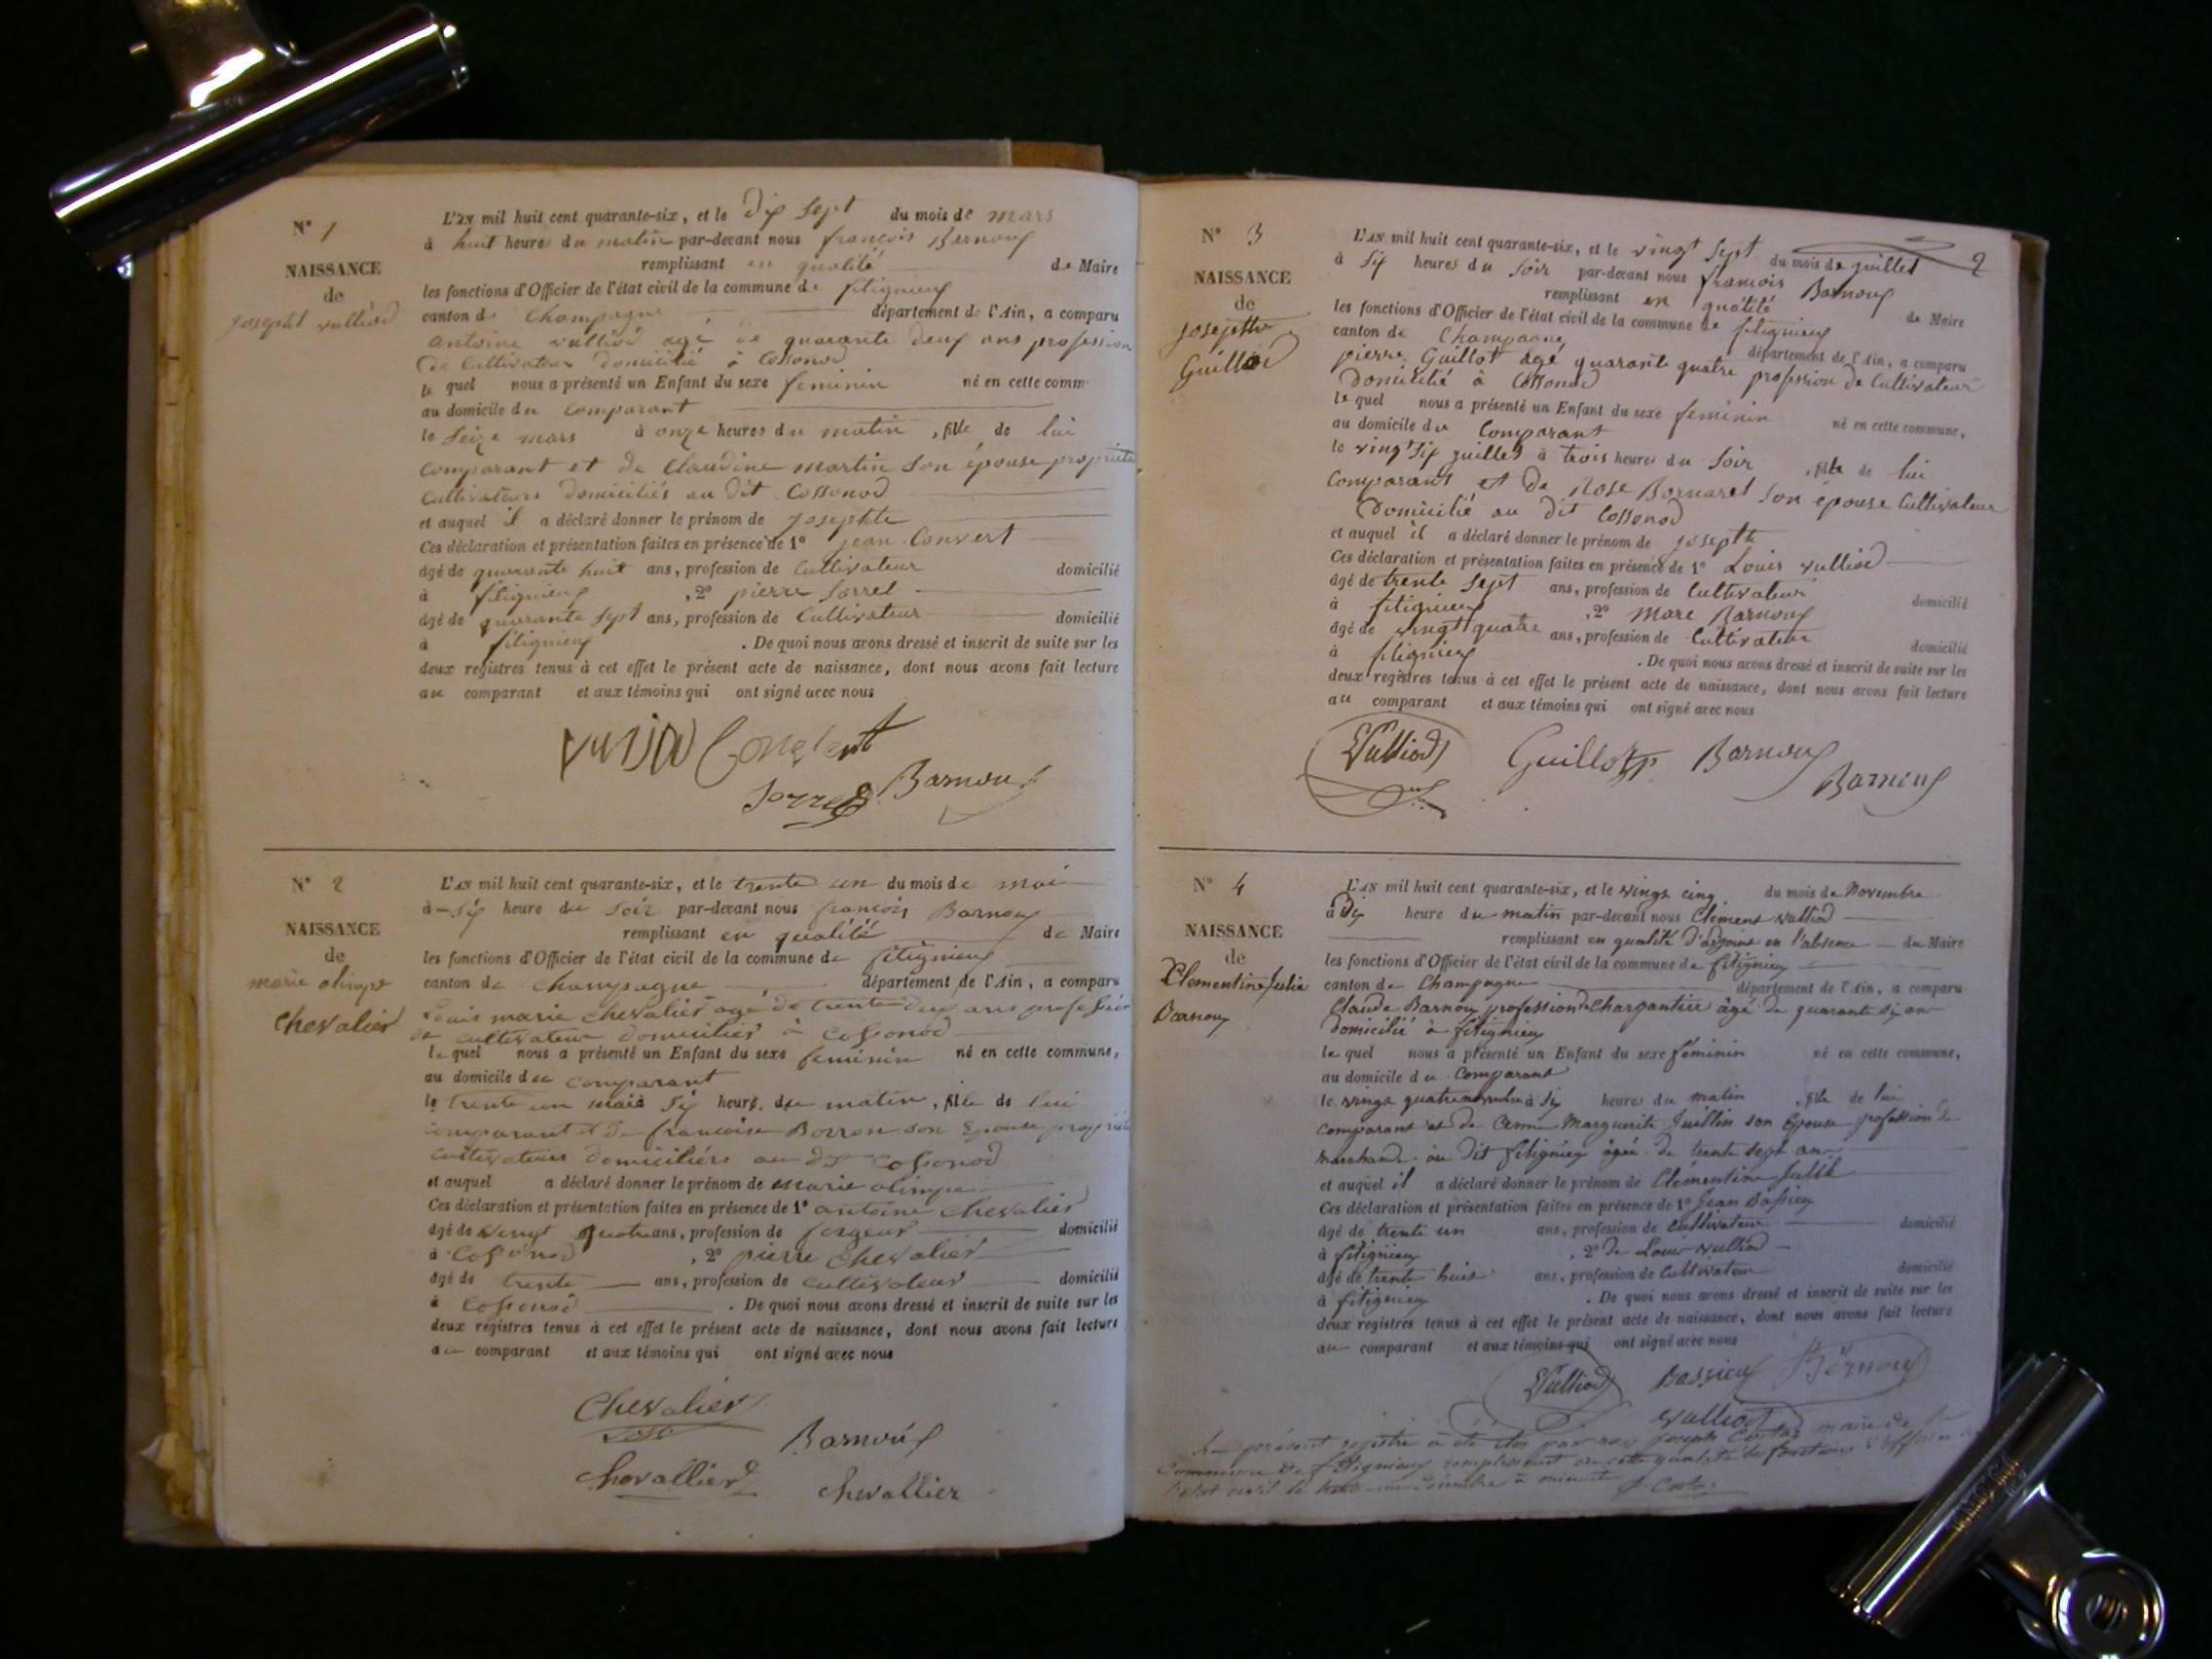 N° 1
NAISSANCE
de
Josephte vulliod
L'AN mil huit cent quarante-six, et le Dix Sept du mois de mars
à huit heures du matin par-devant nous françois Bernoux
remplissant en qualité de Maire
les fonctions d'Officier de l'état civil de la commune de fitignieux
canton de Champagne département de l'Ain, a comparu
antoine vulliod agé de quarante deux ans profession
de Cultivateur domicilié à Cossonod
le quel nous a présenté un Enfant du sexe feminin né en cette comm
au domicile du Comparant
le Seize mars à onze heures du matin, fille de lui
Comparant et de Claudine martin Son épouse propriéte
Cultivateurs domiciliés au dit Cossonod
et auquel il a déclaré donner le prénom de Josephte
Ces déclaration et présentation faites en présence de 1° jean Convert
âgé de quarante huit ans, profession de Cultivateur domicilié
à fitignieux, 2° pierre Sorrel
âgé de quarante sept ans, profession de Cultivateur domicilié
à fitignieux. De quoi nous avons dressé et inscrit de suite sur les
deux registres tenus à cet effet le présent acte de naissance, dont nous avons fait lecture
au comparant et aux témoins qui ont signé avec nous
Barnoux
N° 2
NAISSANCE
de
marie olimpe
Chevalier
L'AN mil huit cent quarante-six, et le trente un du mois de mai
à Six heure du Soir par-devant nous françois Barnoux
remplissant en qualité de Maire
les fonctions d'Officier de l'état civil de la commune de fitignieux
canton de Champagne département de l'Ain, a comparu
Louis marie Chevalier agé de trente deux ans profession
de cultivateur domicilier à Cossonod
le quel nous a présenté un Enfant du sexe feminin né en cette commune,
au domicile du Comparant
le trente un mai à Six heures du matin, fille de lui
comparant et de francoise Borron son Epouse propriét
cultivateurs domiciliérs au dit Cossonod
et auquel a déclaré donner le prénom de marie olimpe
Ces déclaration et présentation faites en présence de 1° antoine Chevalier
âgé de vingt quatre ans, profession de forgeur domicilié
à Cossonod, 2° pierre Chevalier
âgé de trente ans, profession de cultivateur domicilié
à Cossonod. De quoi nous avons dressé et inscrit de suite sur les
deux registres tenus à cet effet le présent acte de naissance, dont nous avons fait lecture
au comparant et aux témoins qui ont signé avec nous
Chevalier
Barnoux
Chevallier
Chevallier
2
N° 3
NAISSANCE
de
Josephte
Guillod
L'AN mil huit cent quarante-six, et le vingt Sept du mois de juillet
à Six heures du Soir par-devant nous françois Barnoux
remplissant en qualité de Maire
les fonctions d'Officier de l'état civil de la commune de fitignieux
canton de Champagne département de l'Ain, a comparu
pierre Guillot agé quarante quatre profession de Cultivateur
Domicilié à Cossonod
le quel nous a présenté un Enfant du sexe feminin né en cette commune,
au domicile du Comparant
le vingt Six juillet à trois heures du Soir, fille de lui
Comparant et de Rose Bornarel Son épouse Cultivateur
Domicilié au dit Cossonod
et auquel il a déclaré donner le prénom de josepthe
Ces déclaration et présentation faites en présence de 1° Louis vulliod
âgé de trente Sept ans, profession de Cultivateur domicilié
à fitignieux, 2° Marc Barnoux
âgé de vingt quatre ans, profession de Cultivateur domicilié
à fitignieux. De quoi nous avons dressé et inscrit de suite sur les
deux registres tenus à cet effet le présent acte de naissance, dont nous avons fait lecture
au comparant et aux témoins qui ont signé avec nous
Vulliod Guillot Barnoux
Barnoux
N° 4
NAISSANCE
de
Clementine Julie
Barnoux
L'AN mil huit cent quarante-six, et le vingt cinq du mois de Novembre
à Dix heure du matin par-devant nous Clement vulliod
remplissant en qualité d'adjoint en l'absence du Maire
les fonctions d'Officier de l'état civil de la commune de fitignieux
canton de Champagne département de l'Ain, a comparu
Claude Barnoux profession de Charpantier âgé de quarante six ans
domicilié à fitignieux
le quel nous a présenté un Enfant du sexe féminin né en cette commune,
au domicile du Comparant
le vingt quatre novembre à Six heures du matin, fille de lui
comparant et de Anne Marguerite Juillin son Epouse profession de
marchande au dit fitignieux âgée de trente sept ans
et auquel il a déclaré donner le prénom de Clémentine Julie
Ces déclaration et présentation faites en présence de 1° Jean Bassieux
âgé de trente un ans, profession de Cultivateur domicilié
à fitignieux, 2° de Louis vulliod
âgé de trente huit ans, profession de Cultivateur domicilié
à fitignieux. De quoi nous avons dressé et inscrit de suite sur les
deux registres tenus à cet effet le présent acte de naissance, dont nous avons fait lecture
au comparant et aux témoins qui ont signé avec nous
Vulliod Bassieux Bernoux
vulliod
Le présent registre à été clos par nous joseph maire de la
Commune de fitignieux remplissant en cette qualité les fonctions d'officier de
l'état civil le trente un décembre à minuit